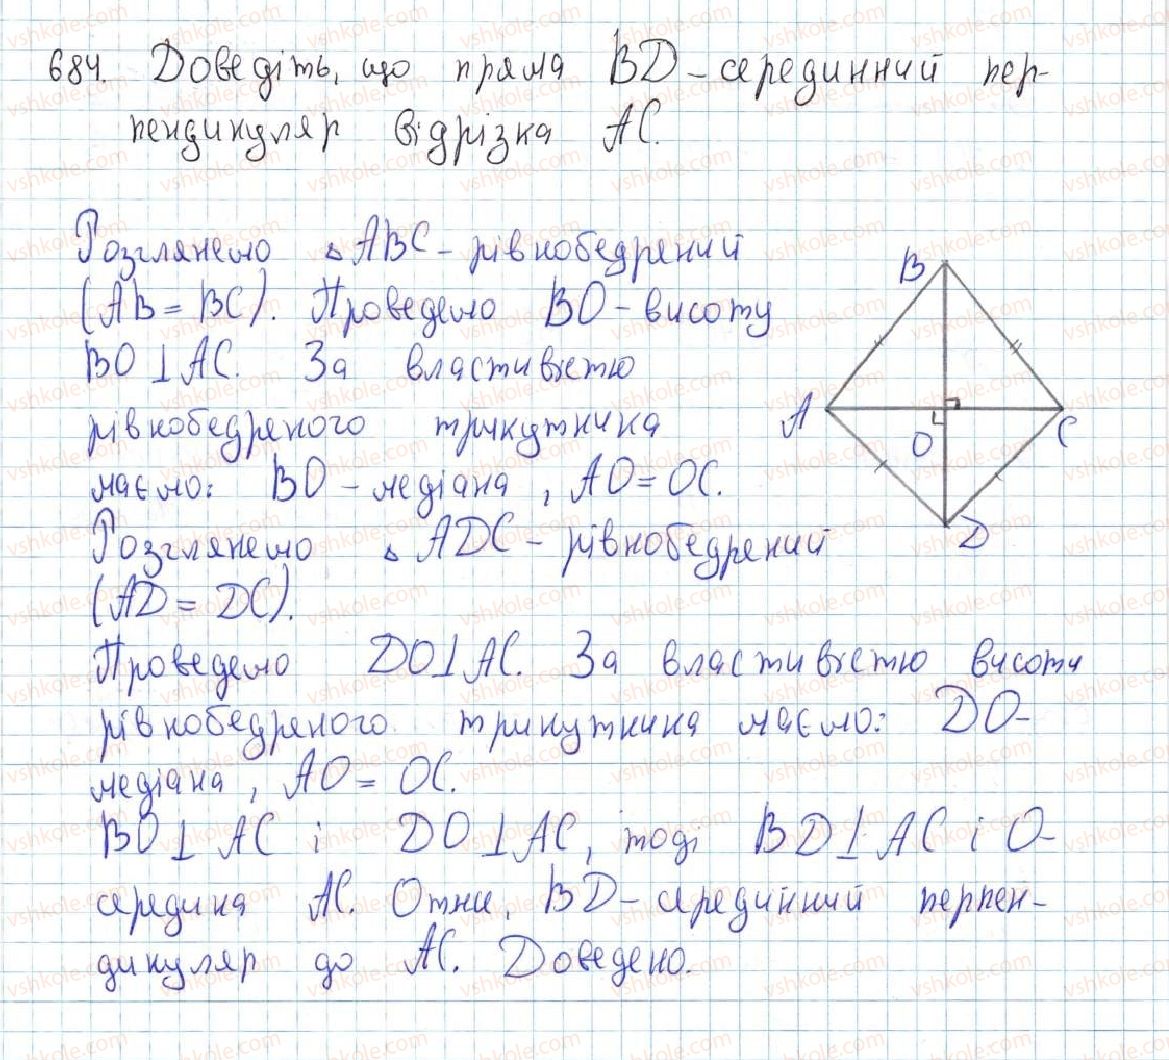 684. Доведіть, що пряма BD - серединний пер-
пендикуляр відрізка AC.
Розглянемо △ABC - рівнобедрений
(AB = BC). Проведемо BO - висоту
BO ⊥ AC. За властивістю
рівнобедреного трикутника
маємо: BO - медіана, AO = OC.
Розглянемо △ADC - рівнобедрений
(AD = DC).
Проведемо DO ⊥ AC. За властивістю висоти
рівнобедреного трикутника маємо: DO -
медіана, AO = OC.
BO ⊥ AC і DO ⊥ AC, тоді BD ⊥ AC і O -
середина AC. Отже, BD - серединний перпен-
дикуляр до AC. Доведено.
B
A
C
O
D
vshkole.com